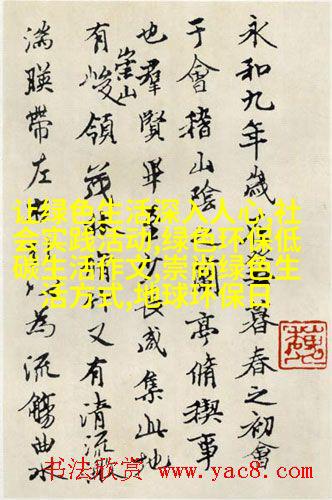 永和九年歲暮春之初會
于會稽山陰之蘭亭脩稧事
也羣賢畢至少長咸集此地
有崇山峻領茂林脩竹又有清流激
湍暎帶左為流觴曲水
让绿色生活深入人心,社
会实践活动,绿色环保低
碳生活作文,崇尚绿色生
活方式,地球环保日
书法欣赏 www.yac8.com